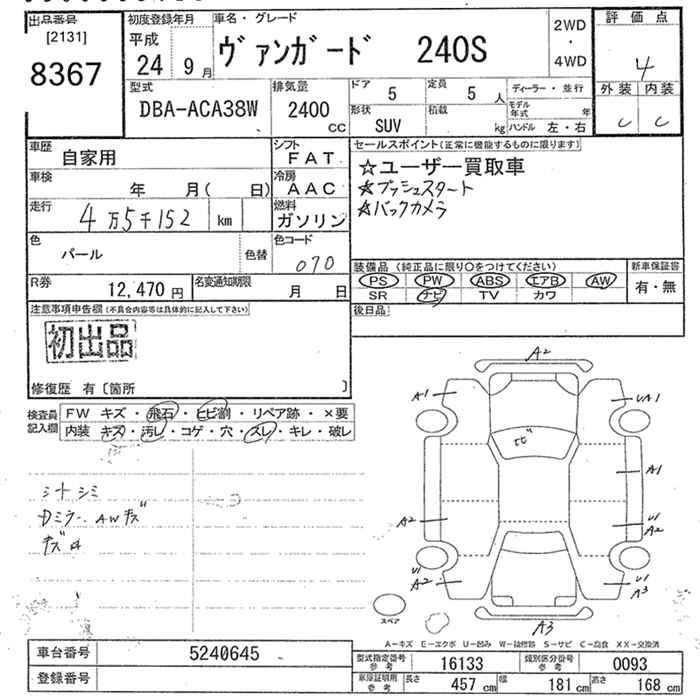 出品番号 初度登録年月 車名・グレード 2WD 評価点
[2131] 平成 ヴァンガード 240S ・ 4
8367 24年9月 4WD 外装 内装
型式 排気量 ドア 5 定員 5人 ディーラー・並行 C C
DBA-ACA38W 2400 形状 積載 モデル年式 年
CC SUV kg ハンドル 左・右
車歴 自家用 シフト FAT セールスポイント(正常に機能するものに限ります)
車検 年 月( 日) 冷房 AAC ☆ユーザー買取車
走行 4万5千152 km 燃料 ガソリン ☆プッシュスタート
☆バックカメラ
色 パール 色替 色コード 070
装備品 (純正品に限り○をつけてください) 新車保証書
PS PW ABS エアB AW 有・無
R券 12,470円 名変通知期限 月 日 SR ナビ TV カワ
注意事項申告欄(不具合内容等は具体的に記入して下さい) 後日品
初出品
修復歴 有〔箇所 〕
検査員記入欄 FW キズ・飛石・ヒビ割・リペア跡・×要
内装 キズ・汚レ・コゲ・穴・スレ・キレ・破レ
A2
A1 UA1
A1
A2 U1 A2
U1 A2 U1 A3
A3
シートシミ
Dミラー、AWキズ
スペア
A-キズ E-エクボ U-凹み W-補修跡 S-サビ C-腐食 XX-交換済
車台番号 5240645 型式指定番号 参考 16133 類別区分番号 参考 0093
登録番号 車庫証明用 参考 長さ 457cm 幅 181cm 高さ 168cm